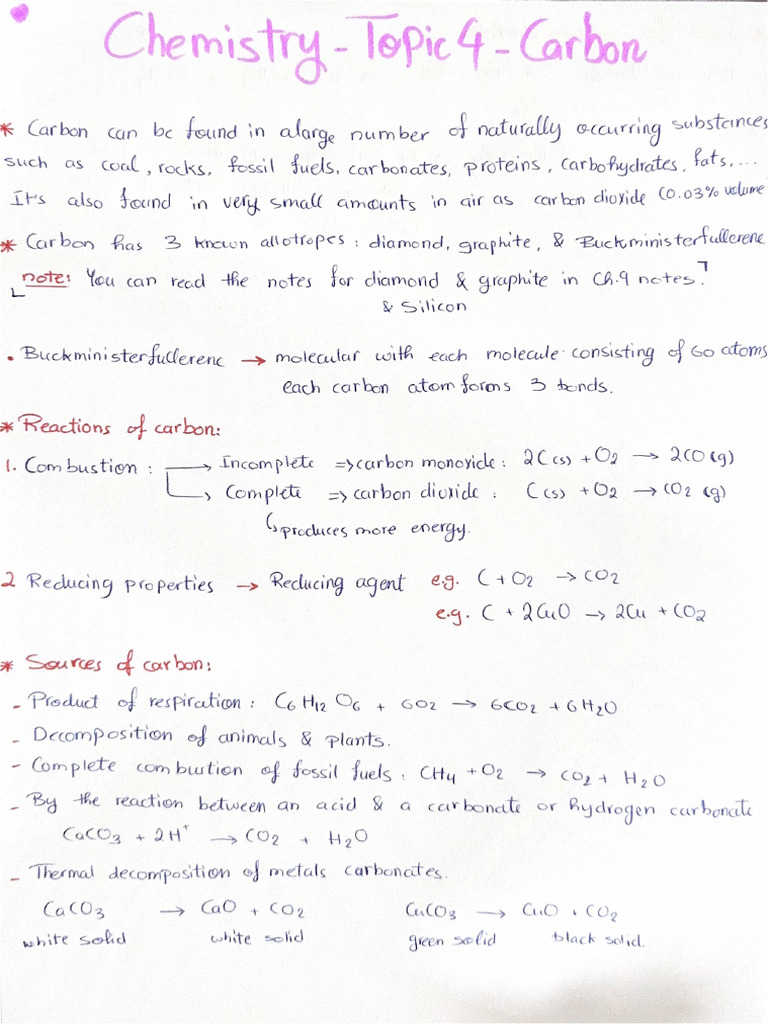 Chemistry - Topic 4 - Carbon
* Carbon can be found in a large number of naturally occurring substances
such as coal, rocks, fossil fuels, carbonates, proteins, carbohydrates, fats, ...
It's also found in very small amounts in air as carbon dioxide (0.03% volume
* Carbon has 3 known allotropes: diamond, graphite, & Buckministerfullerene
note: You can read the notes for diamond & graphite in Ch.9 notes.
& Silicon
• Buckministerfullerene → molecular with each molecule consisting of 60 atoms
each carbon atom forms 3 bonds.
* Reactions of carbon:
1. Combustion : → Incomplete => carbon monoxide : 2C(s) + O2 → 2CO (g)
→ Complete => carbon dioxide : C(s) + O2 → CO2 (g)
↳ produces more energy.
2 Reducing properties → Reducing agent e.g. C + O2 → CO2
e.g. C + 2CuO → 2Cu + CO2
* Sources of carbon:
- Product of respiration : C6H12O6 + 6O2 → 6CO2 + 6H2O
- Decomposition of animals & plants.
- Complete combustion of fossil fuels : CH4 + O2 → CO2 + H2O
- By the reaction between an acid & a carbonate or hydrogen carbonate
CaCO3 + 2H+ → CO2 + H2O
- Thermal decomposition of metals carbonates.
CaCO3 → CaO + CO2 CuCO3 → CuO + CO2
white solid white solid green solid black solid.